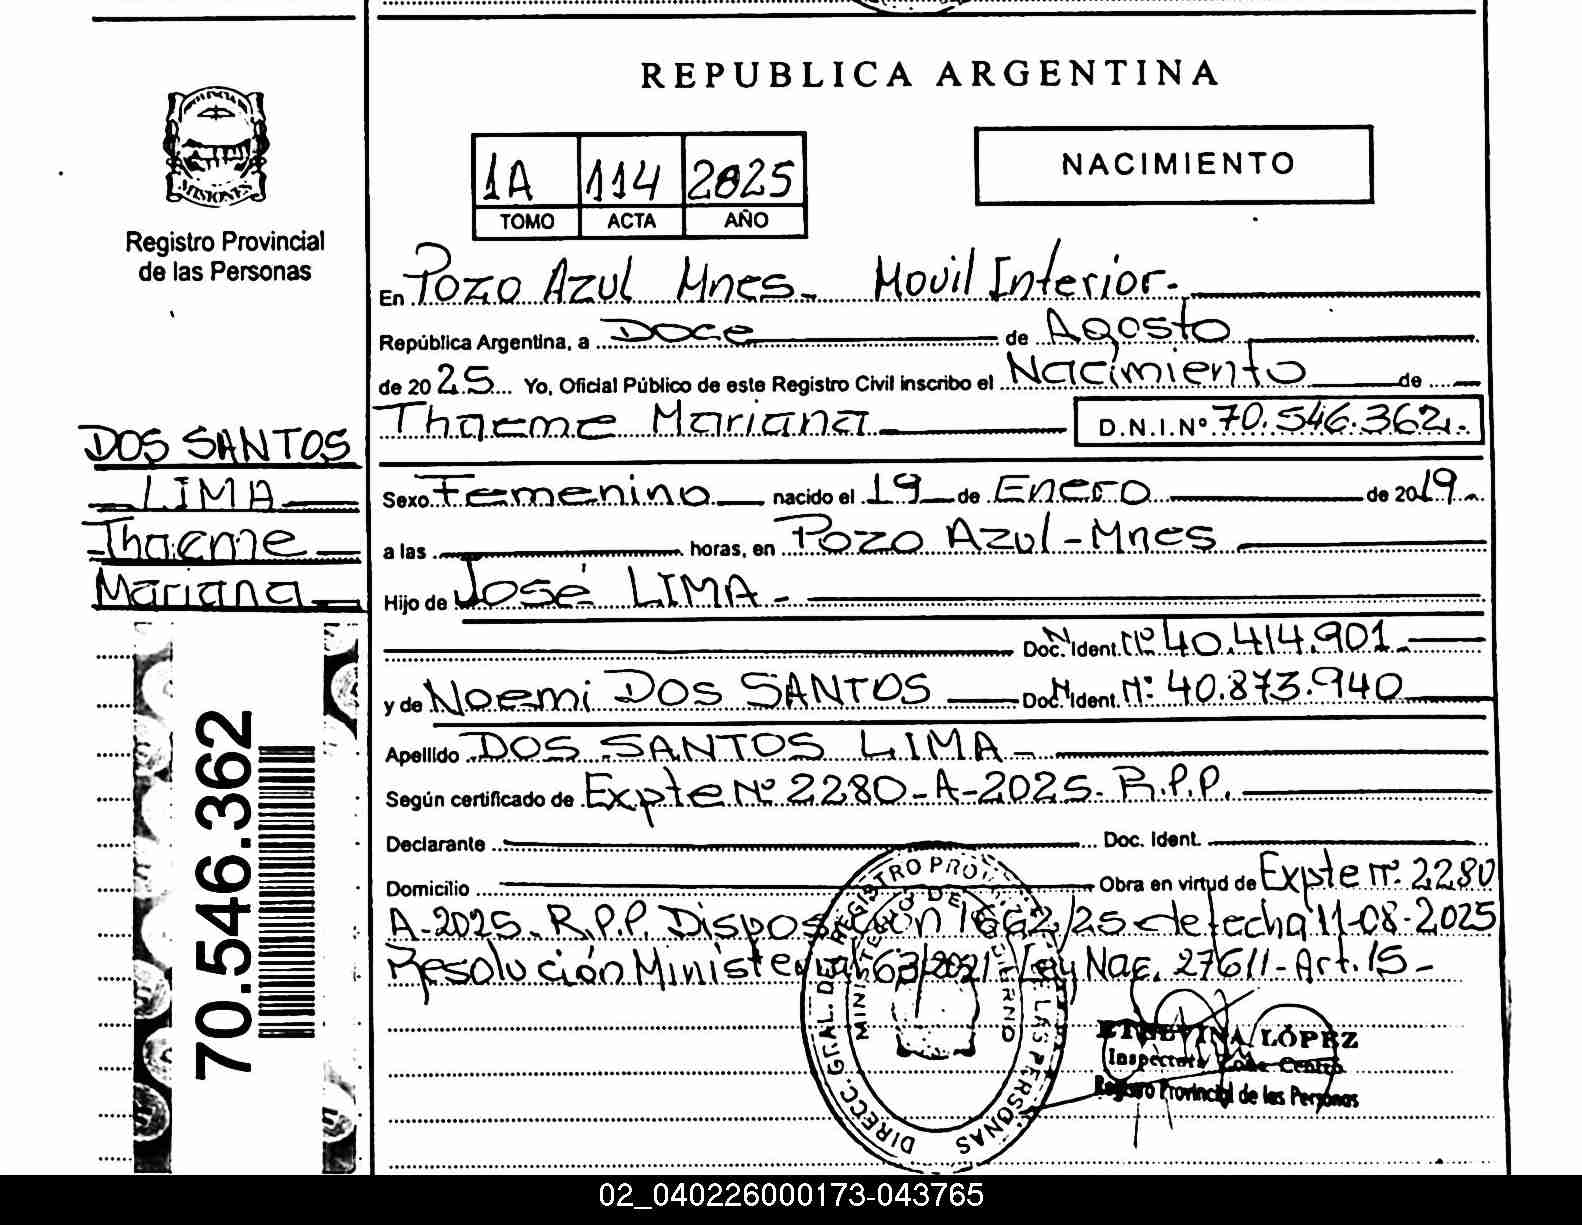 REPUBLICA ARGENTINA
PROVINCIA DE
MISIONES
Registro Provincial
de las Personas
1A 114 2025
TOMO ACTA AÑO
NACIMIENTO
En Pozo Azul Mnes. Movil Interior.
República Argentina, a Doce de Agosto
de 2025 Yo, Oficial Público de este Registro Civil inscribo el Nacimiento de
Thaeme Mariana D.N.I.Nº 70.546.362.
DOS SANTOS
LIMA
Thaeme
Mariana
Sexo Femenino nacido el 19 de Enero de 2019
a las horas, en Pozo Azul - Mnes
Hijo de José LIMA -
Doc. Ident. Nº 40.414.901.
y de Noemi DOS SANTOS Doc. Ident. Nº 40.873.940
Apellido DOS SANTOS LIMA -
Según certificado de Expte Nº 2280-A-2025. R.P.P.
Declarante Doc. Ident.
Domicilio Obra en virtud de Expte nº 2280
A-2025. R.P.P. Disposición 1662/25 de fecha 11-08-2025
Resolución Ministerial 63/2021 Ley Nac. 27611 - Art. 15 -
70.546.362
DIRECC. GRAL. DEL REGISTRO PROV. DE LAS PERSONAS
MINISTERIO DE GOBIERNO
ETELVINA LÓPEZ
Inspectora Zona Centro
Registro Provincial de las Personas
02_040226000173-043765